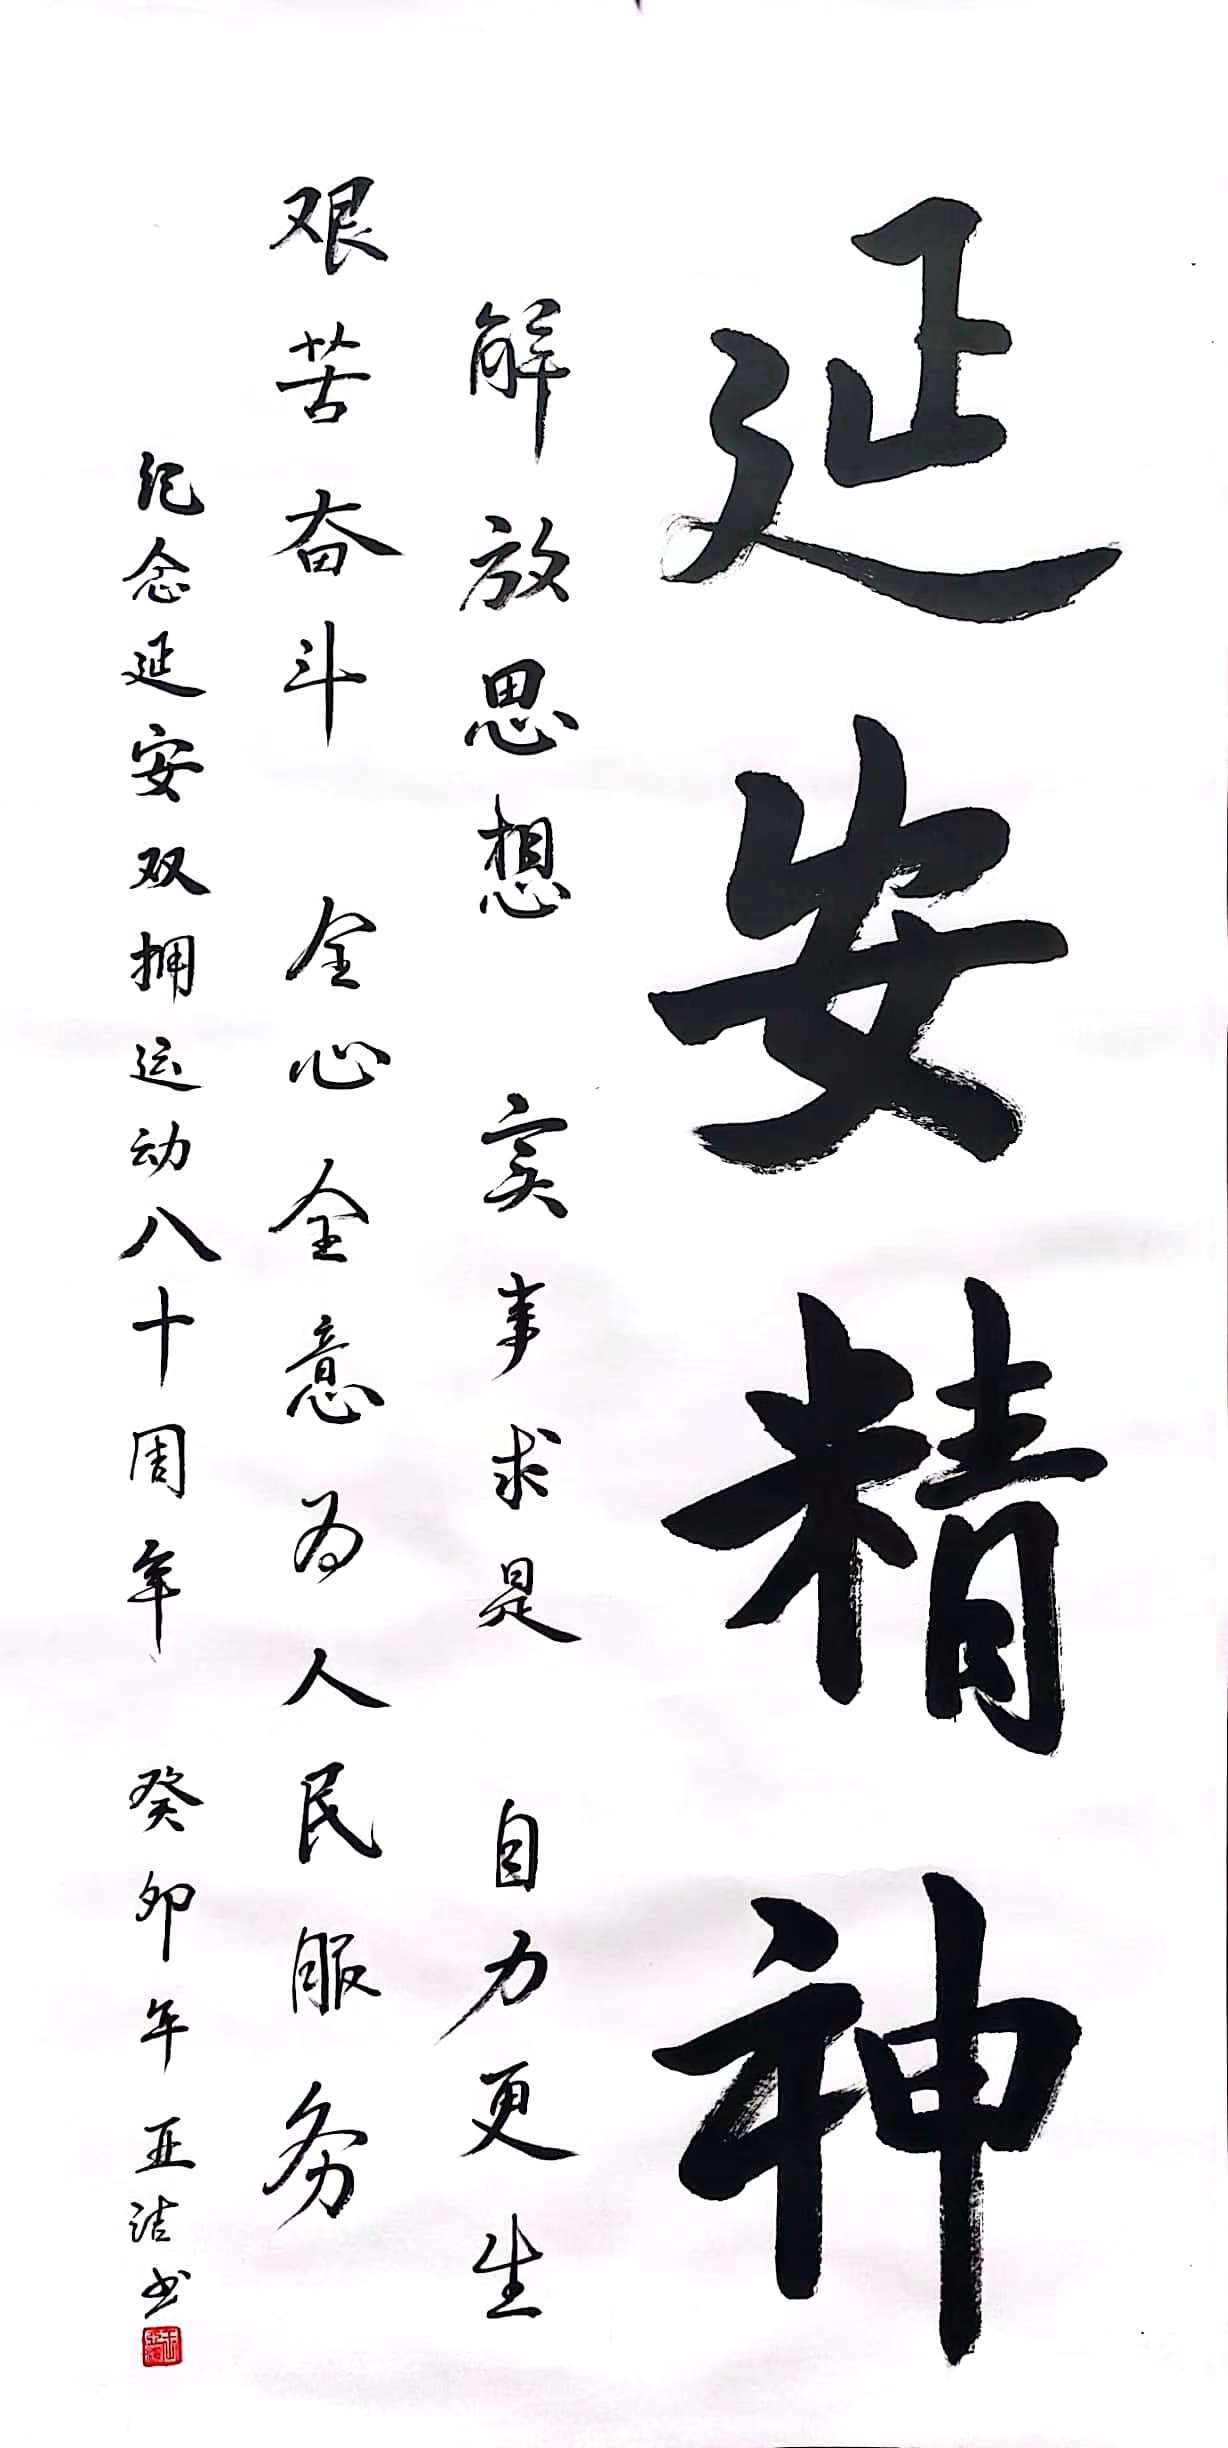 延安精神
解放思想 实事求是 自力更生
艰苦奋斗 全心全意为人民服务
纪念延安双拥运动八十周年 癸卯年亚洁书